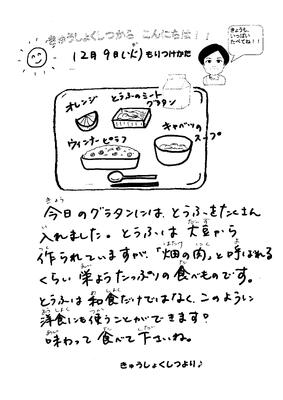 きゅうしょくしつから こんにちは！！
12月9日(火)もりつけかた
きょうも、
いっぱい
たべてね！！
オレンジ
とうふのミート
グラタン
ウィンナーピラフ
キャベツの
スープ
今日のグラタンには、とうふをたくさん
入れました。とうふは大豆から
作られていますが、「畑の肉」と呼ばれる
くらい栄ようたっぷりの食べものです。
とうふは和食だけではなく、このように
洋食にも使うことができます？
味わって食べて下さいね。
きゅうしょくしつより♪